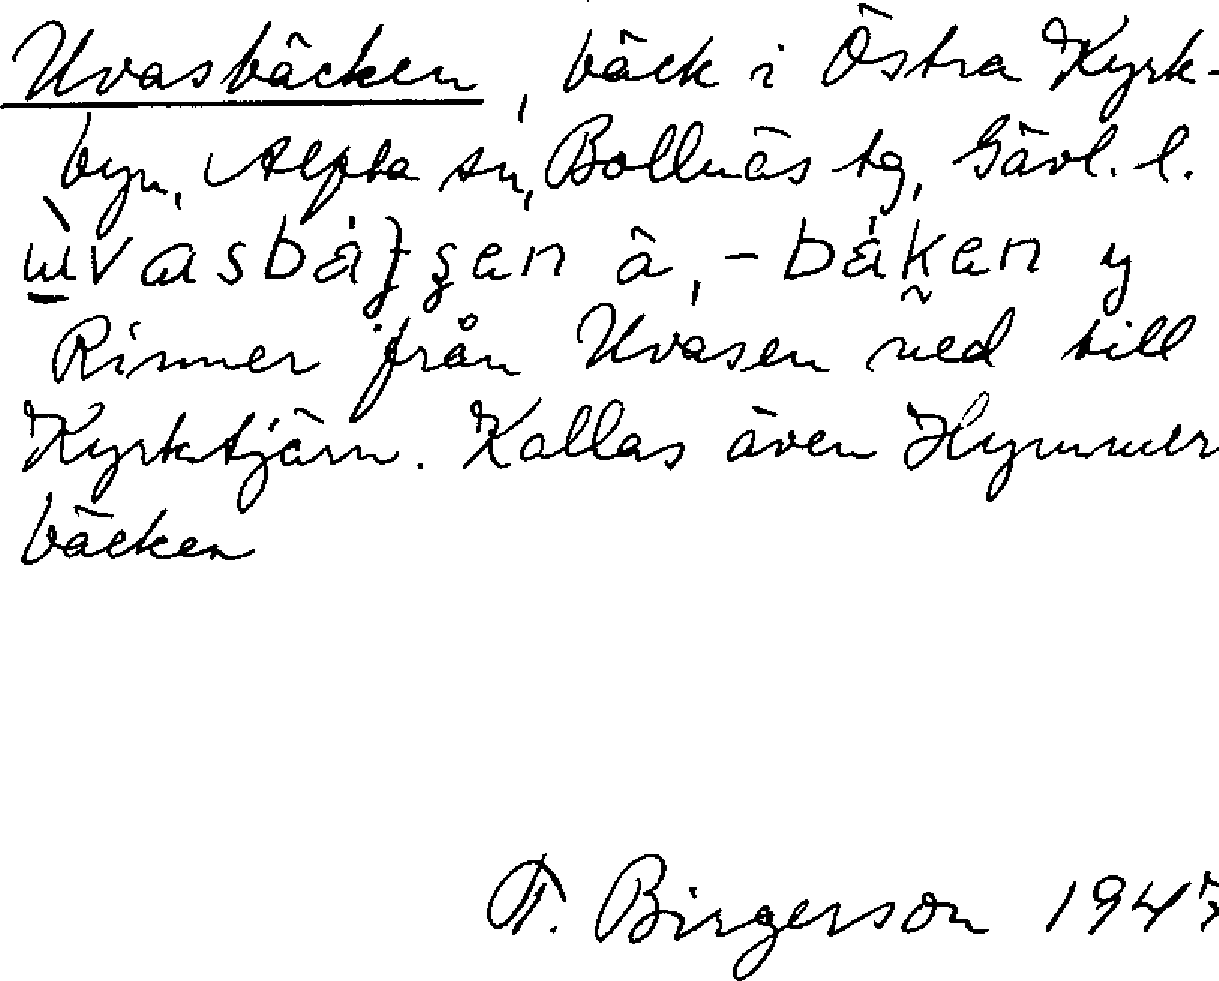 Uvasbäcken, bäck i Östra Kyrk-
byn, Alfta sn, Bollnäs tg, Gävl. l.
Rinner från Uvåsen ned till
Kyrktjärn. Kallas även Hymmer
bäcken
F. Birgerson